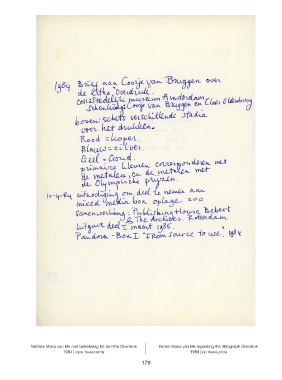 1984 Brief aan Coosje van Bruggen over
de Litho "Overdruk".
coll: Stedelijk museum Amsterdam,
schenking: Coosje van Bruggen en Claes Oldenburg
boven: schets verschillende stadia
voor het drukken.
Rood = koper.
Blauw = zilver.
Geel = Goud.
primaire kleuren corresponderen met
de metalen, en de metalen met
de Olympische prijzen.
10-4-84 uitnodiging om deel te nemen aan
mixed media box oplage 200
samenwerking: Publishing House Bebert
& The Archives. Rotterdam,
Uitgave deel I maart 1985.
Pandora-Box I "From source to use", 1984
Notities Marja van Elk met betrekking tot de litho Overdruk
1984 |
Notes Marja van Elk regarding the lithograph Overdruk
1984 |
179